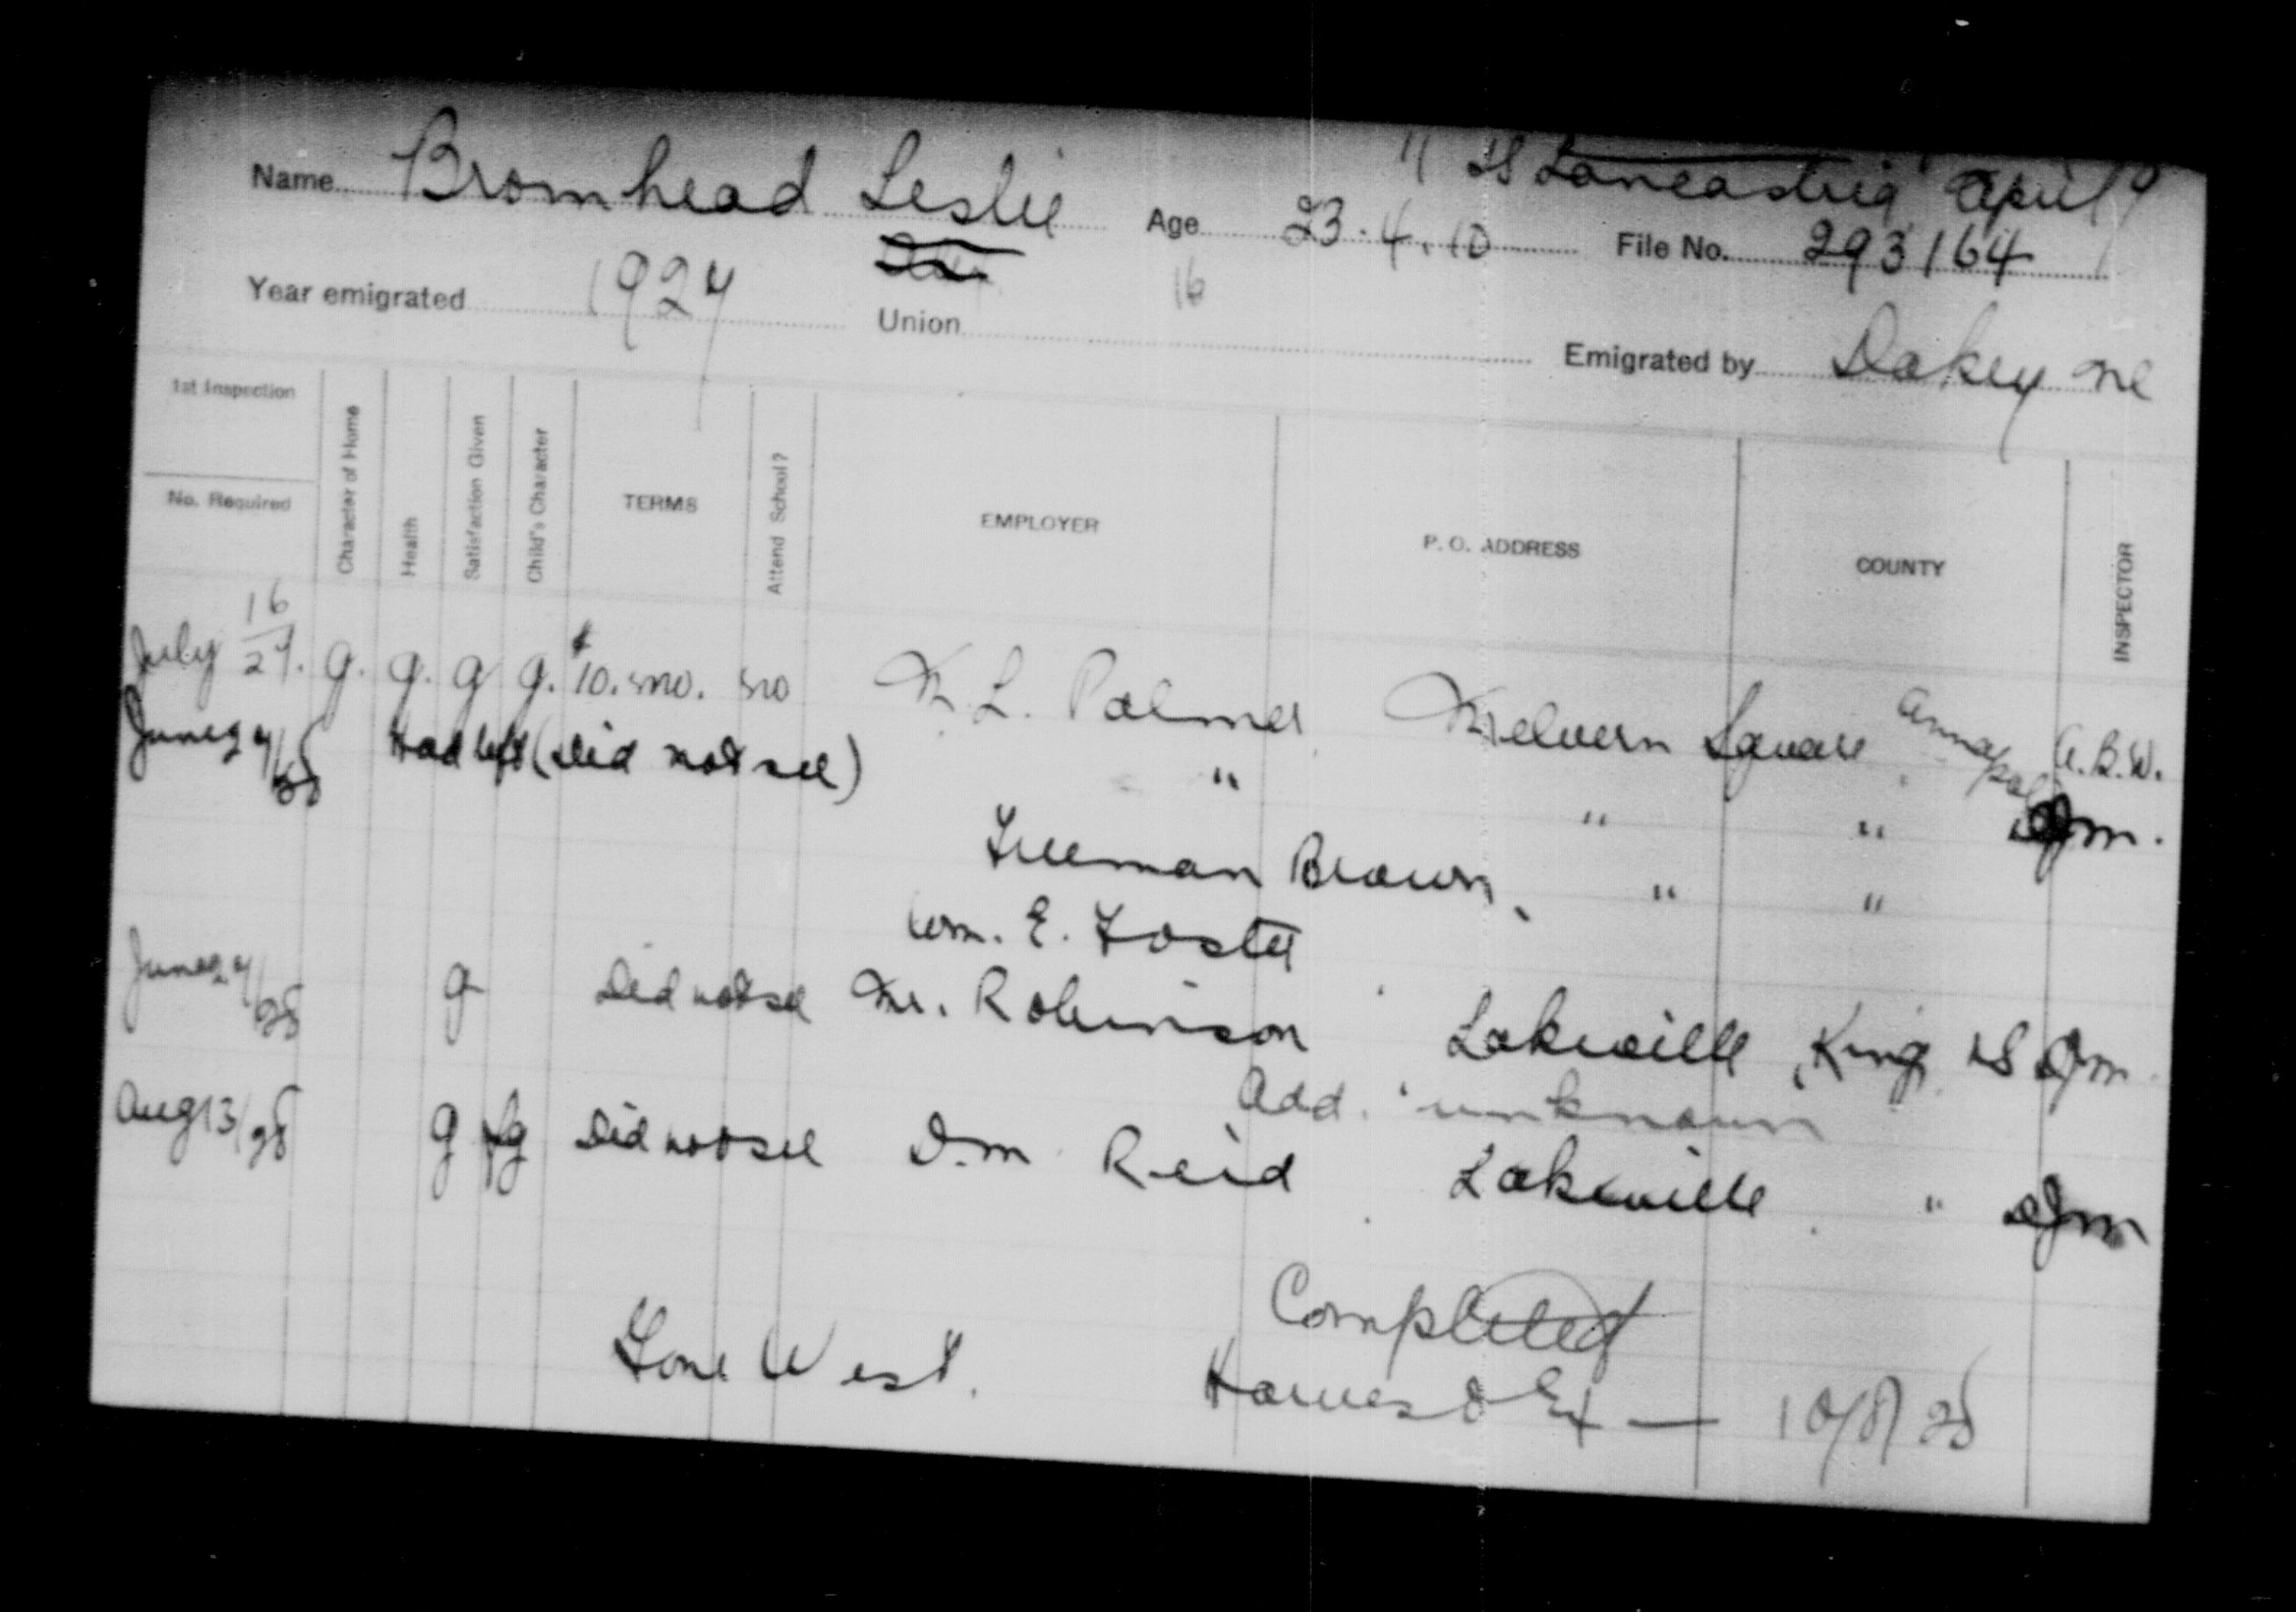 SS Lancastria April
Name Bromhead Leslie Age 23.4.10 File No. 293164
16
Year emigrated 1927 Union Emigrated by Dakeyne
1st Inspection
No. Required
Character of Home
Health
Satisfaction Given
Child's Character
TERMS
Attend School?
EMPLOYER
P. O. ADDRESS
COUNTY
INSPECTOR
July 16/27. g. g. g g. $10. mo. no M. L. Palmer Melvern Square Annapolis A.B.W.
June 27/28 Had left (Did not see) " " " DJM.
Freeman Brown " "
Wm. E. Foster
June 27/28 g Did not see Mr. Robinson Lakeville, Kings NS DJM
Add. unknown
Aug 13/28 g fg Did not see D.M Reid Lakeville " DJM
Completed
Gone West. Harvest Ex — 10/8/28